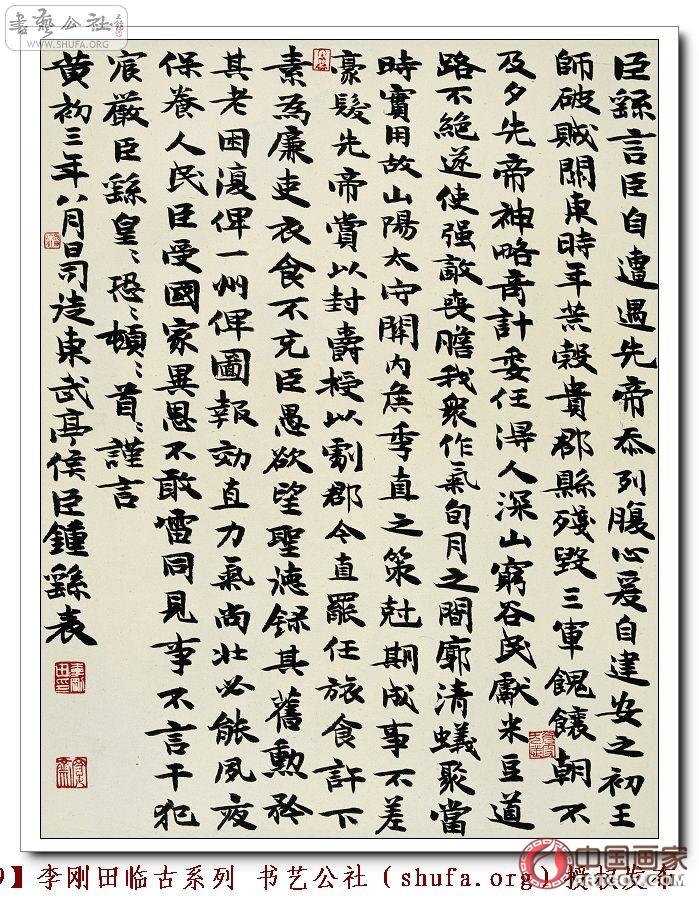 書藝公社
WWW.SHUFA.ORG
臣繇言臣自遭遇先帝忝列腹心爰自建安之初王
師破賊關東時年荒穀貴郡縣殘毀三軍餽饟朝不
及夕先帝神略奇計委任得人深山窮谷民獻米豆道
路不絶遂使强敵喪膽我衆作氣旬月之間廓清蟻聚當
時實用故山陽太守關内侯季直之策尅期成事不差
豪髮先帝賞以封爵授以劇郡今直罷任旅食許下
素為廉吏衣食不充臣愚欲望聖德録其舊勳矜
其老困復俾一州俾圖報効直力氣尚壯必能夙夜
保養人民臣受國家異恩不敢雷同見事不言干犯
宸嚴臣繇皇〻恐〻頓〻首〻謹言
黄初三年八月日司徒東武亭侯臣鍾繇表
9】李刚田临古系列 书艺公社（shufa.org）授权发布
中国画家
ARTCHN.COM